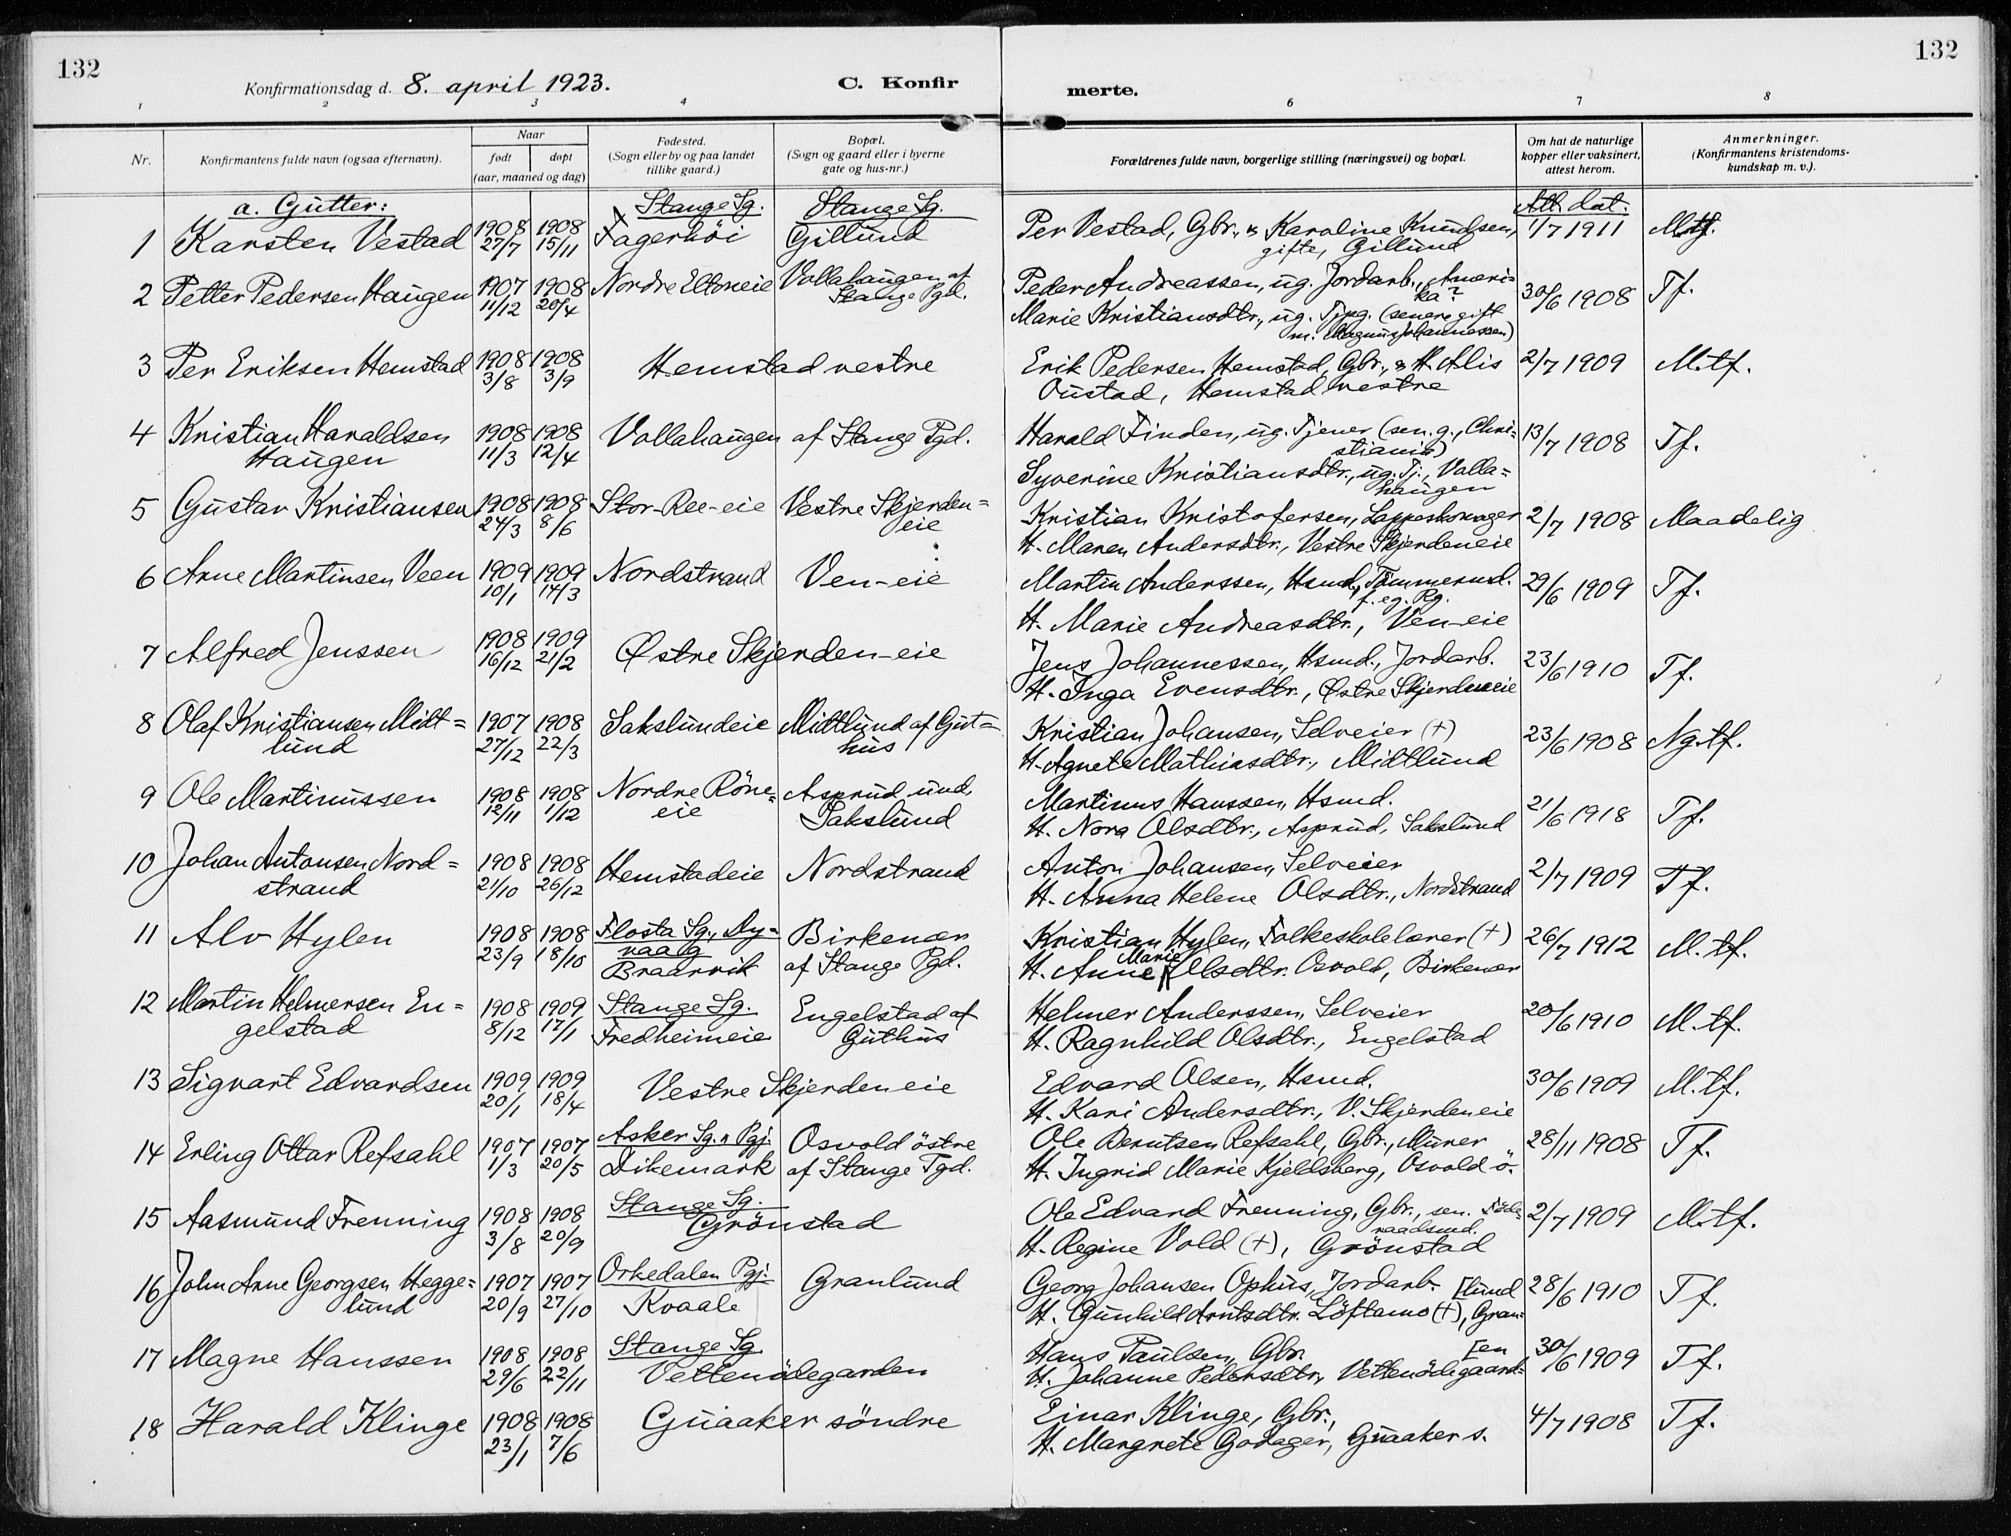 132
132
Konfirmationsdag d. 8. april 1923.
C. Konfirmerte.
1 2 3 4 6 7 8
Nr.
Konfirmantens fulde navn (ogsaa efternavn).
Naar
født
døpt
(aar, maaned og dag)
Fødested.
(Sogn eller by og paa landet
tillike gaard.)
Bopæl.
(Sogn og gaard eller i byerne
gate og hus-nr.)
Forældrenes fulde navn, borgerlige stilling (næringsvei) og bopæl.
Om hat de naturlige
kopper eller vaksinert,
attest herom.
Anmerkninger.
(Konfirmantens kristendoms-
kundskap m. v.).
a. Gutter: Stange Sg. Stange Sg. Att. dat.
1 Karsten Vestad 1908 27/7 1908 15/11 Fagerhöi Gillund Per Vestad, Gbr., & Karoline Knudsen, 1/7 1911 M.tf.
gifte, Gillund
2 Petter Pedersen Haugen 1907 11/12 1908 20/4 Nordre Eltoneie Vollahaugen af Peder Andreassen, ug. Jordarb., Ameri= 30/6 1908 Tf.
Stange Pgd. ka?
Marie Kristiansdtr., ug. Tjpg. (senere gift
m. Magnus Johannessen)
3 Per Eriksen Hemstad 1908 3/8 1908 3/9 Hemstad vestre Erik Pedersen Hemstad, Gbr., & H. Alis 2/7 1909 M.tf.
Oustad, Hemstad vestre
4 Kristian Haraldsen 1908 11/3 1908 12/4 Vollahaugen af Stange Pgd. Harald Finden, ug. Tjener (sen. g., Chri= 13/7 1908 Tf.
Haugen stiania)
Syverine Kristiansdtr., ug. Tj., Volla=
haugen
5 Gustav Kristiansen 1908 24/3 1908 8/6 Stor-Ree-eie Vestre Skjerden= Kristian Kristofersen, Lappeskomager 2/7 1908 Maadelig
eie H. Maren Andersdtr., Vestre Skjerdeneie
6 Arne Martinsen Veen 1909 10/1 1909 14/3 Nordstrand Ven-eie Martin Anderssen, Hsmd., Tömmermd. 29/6 1909 Tf.
f. eg. Rg.
H. Marie Andreasdtr., Ven-eie
7 Alfred Jenssen 1908 16/12 1909 21/2 Østre Skjerden-eie Jens Johannessen, Hsmd., Jordarb. 23/6 1910 Tf.
H. Inga Evensdtr., Østre Skjerdeneie
8 Olaf Kristiansen Midt= 1907 27/12 1908 22/3 Sakslundeie Midtlund af Gut= Kristian Johansen, Selveier (+) 23/6 1908 Ng.tf.
lund hus H. Agnete Mathiasdtr., Midtlund
9 Ole Martinussen 1908 12/11 1908 1/12 Nordre Röne= Asprud und. Martinus Hanssen, Hsmd. 21/6 1918 Tf.
eie Sakslund H. Nora Olsdtr., Asprud, Sakslund
10 Johan Antonsen Nord= 1908 21/10 1908 26/12 Hemstadeie Nordstrand Anton Johansen, Selveier 2/7 1909 Tf.
strand H. Anna Helene Olsdtr., Nordstrand
11 Alv Hylen 1908 23/9 1908 18/10 Flosta Sg., Dy= Birkenær Kristian Hylen, Folkeskolelærer (+) 26/7 1912 M.tf.
vaag
Braarvik af Stange Pgd. H. Anne Marie Olsdtr. Osvold, Birkenær
12 Martin Helmersen En= 1908 8/12 1909 17/1 Stange Sg. Engelstad af Helmer Anderssen, Selveier 20/6 1910 M.tf.
gelstad Fredheimeie Guthus H. Ragnhild Olsdtr., Engelstad
13 Sigvart Edvardsen 1909 20/1 1909 18/4 Vestre Skjerdeneie Edvard Olsen, Hsmd. 30/6 1909 M.tf.
H. Kari Andersdtr., V. Skjerdeneie
14 Erling Ottar Refsahl 1907 1/3 1907 20/5 Asker Sg. & Pgj. Osvold östre Ole Berntsen Refsahl, Gbr., Murer 28/11 1908 Tf.
Dikemark af Stange Pgd. H. Ingrid Marie Kjeldsberg, Osvold ö.
15 Aasmund Frenning 1908 3/8 1908 20/9 Stange Sg. Ole Edvard Frenning, Gbr., sen. Föde= 2/7 1909 M.tf.
raadsmd.
Grönstad H. Regine Vold (+), Grönstad
16 John Arne Georgsen Hegge= 1907 20/9 1907 27/10 Orkedalen Pgj. Granlund Georg Johansen Ophus, Jordarb. [lund 28/6 1910 Tf.
lund Kvaale H. Gunhild Arntsdtr. Löftamo (+), Gran=
17 Magne Hanssen 1908 29/6 1908 22/11 Stange Sg. Hans Paulsen, Gbr. [en 30/6 1909 Tf.
Vettenödegarden H. Johanne Pedersdtr., Vettenödegaard=
18 Harald Klinge 1908 23/1 1908 7/6 Guaaker söndre Einar Klinge, Gbr., 4/7 1908 Tf.
H. Margrete Godager, Guaaker s.